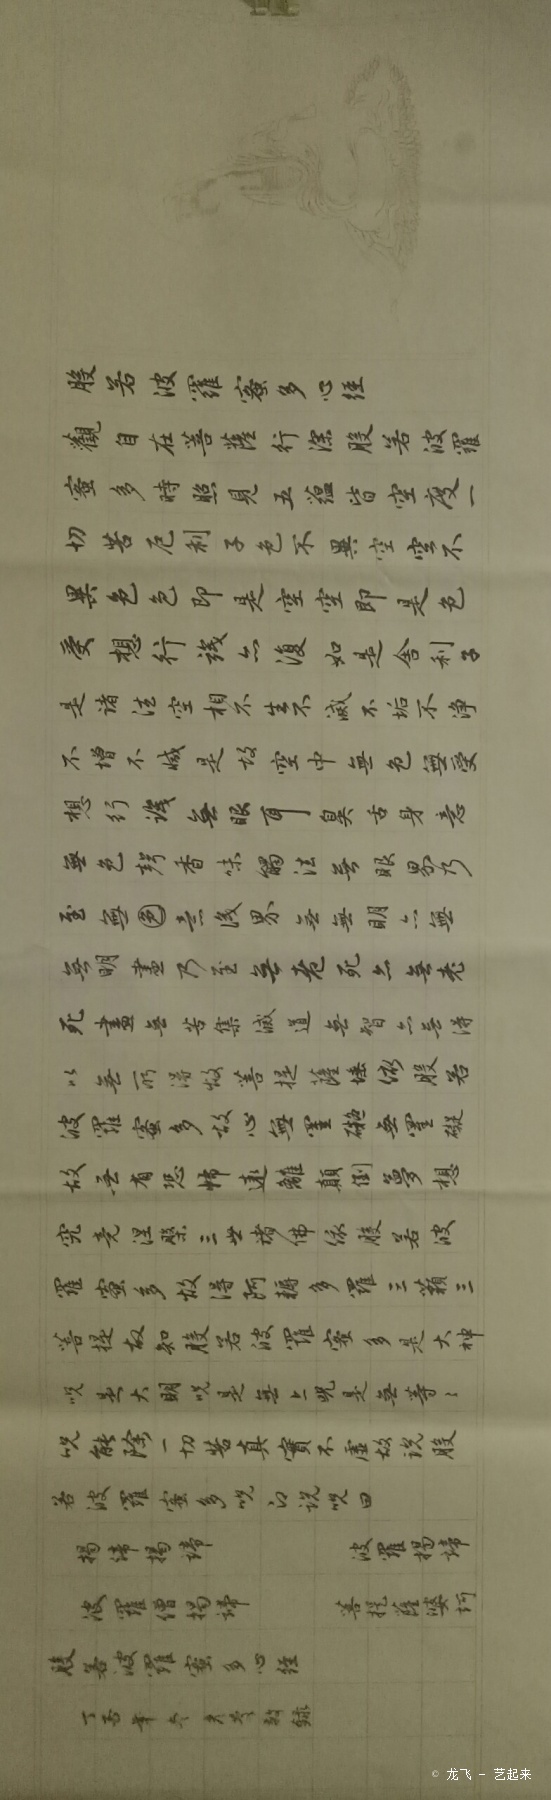 般若波羅蜜多心經
觀自在菩薩行深般若波羅
蜜多時照見五蘊皆空度一
切苦厄利子色不異空空不
異色色即是空空即是色
受想行識亦復如是舍利子
是諸法空相不生不滅不垢不淨
不增不減是故空中無色無受
想行識無眼耳鼻舌身意
無色聲香味觸法無眼界乃
至無色意識界無無明亦無
無明盡乃至無老死亦無老
死盡無苦集滅道無智亦無得
以無所得故菩提薩埵依般若
波羅蜜多故心無罣礙無罣礙
故无有恐怖遠離顛倒夢想
究竟涅槃三世諸佛依般若波
羅蜜多故得阿耨多羅三藐三
菩提故知般若波羅蜜多是大神
咒是大明咒是無上咒是無等々
咒能除一切苦真實不虛故說般
若波羅蜜多咒即說咒曰
揭諦揭諦 波羅揭諦
波羅僧揭諦 菩提薩婆訶
般若波羅蜜多心經
丁酉年冬 敬錄
© 龙飞 - 艺起来